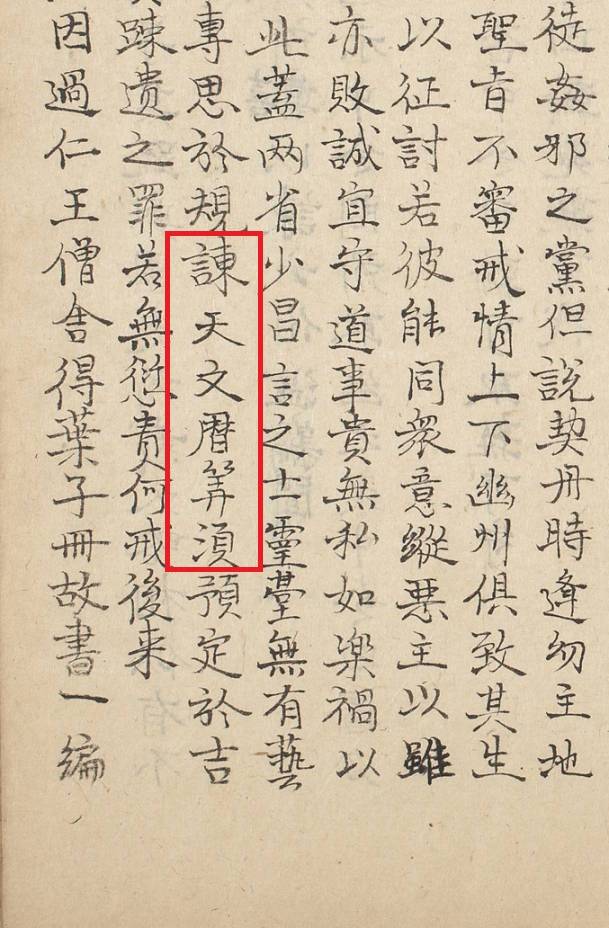 徒姦邪之黨但說契丹時逢幼主地
聖旨不審戒情上下幽州俱致其生
以征討若彼能同衆意縱悪主以雖
亦敗誠宜守道事貴無私如楽禍以
此蓋两省少昌言之士霊臺無有藝
專思於規諫天文暦筭須預定於吉
踈遺之罪若無愆責何戒後来
因過仁王僧舎得葉子冊故書一編